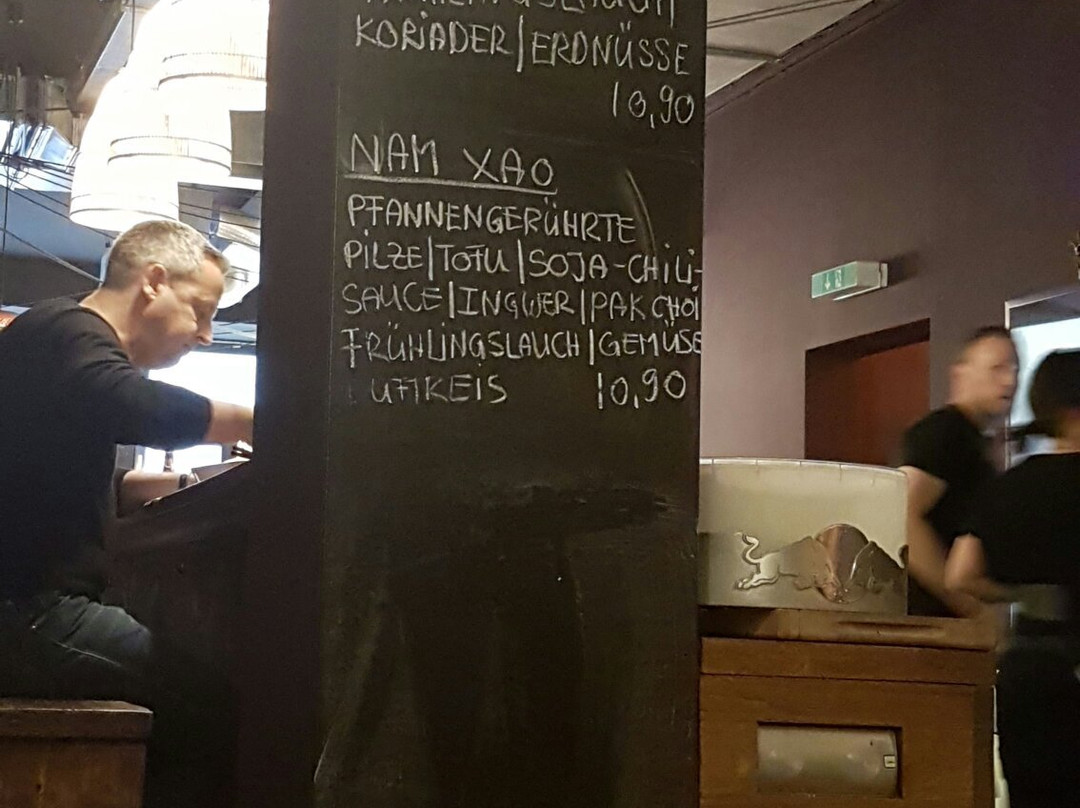 KORIADER|ERDNÜSSE
10,90
NAM XAO
PFANNENGERÜHRTE
PILZE|TOFU|SOJA-CHILI-
SAUCE|INGWER|PAK CHOI
FRÜHLINGSLAUCH|GEMÜSE
DUFTREIS 10,90